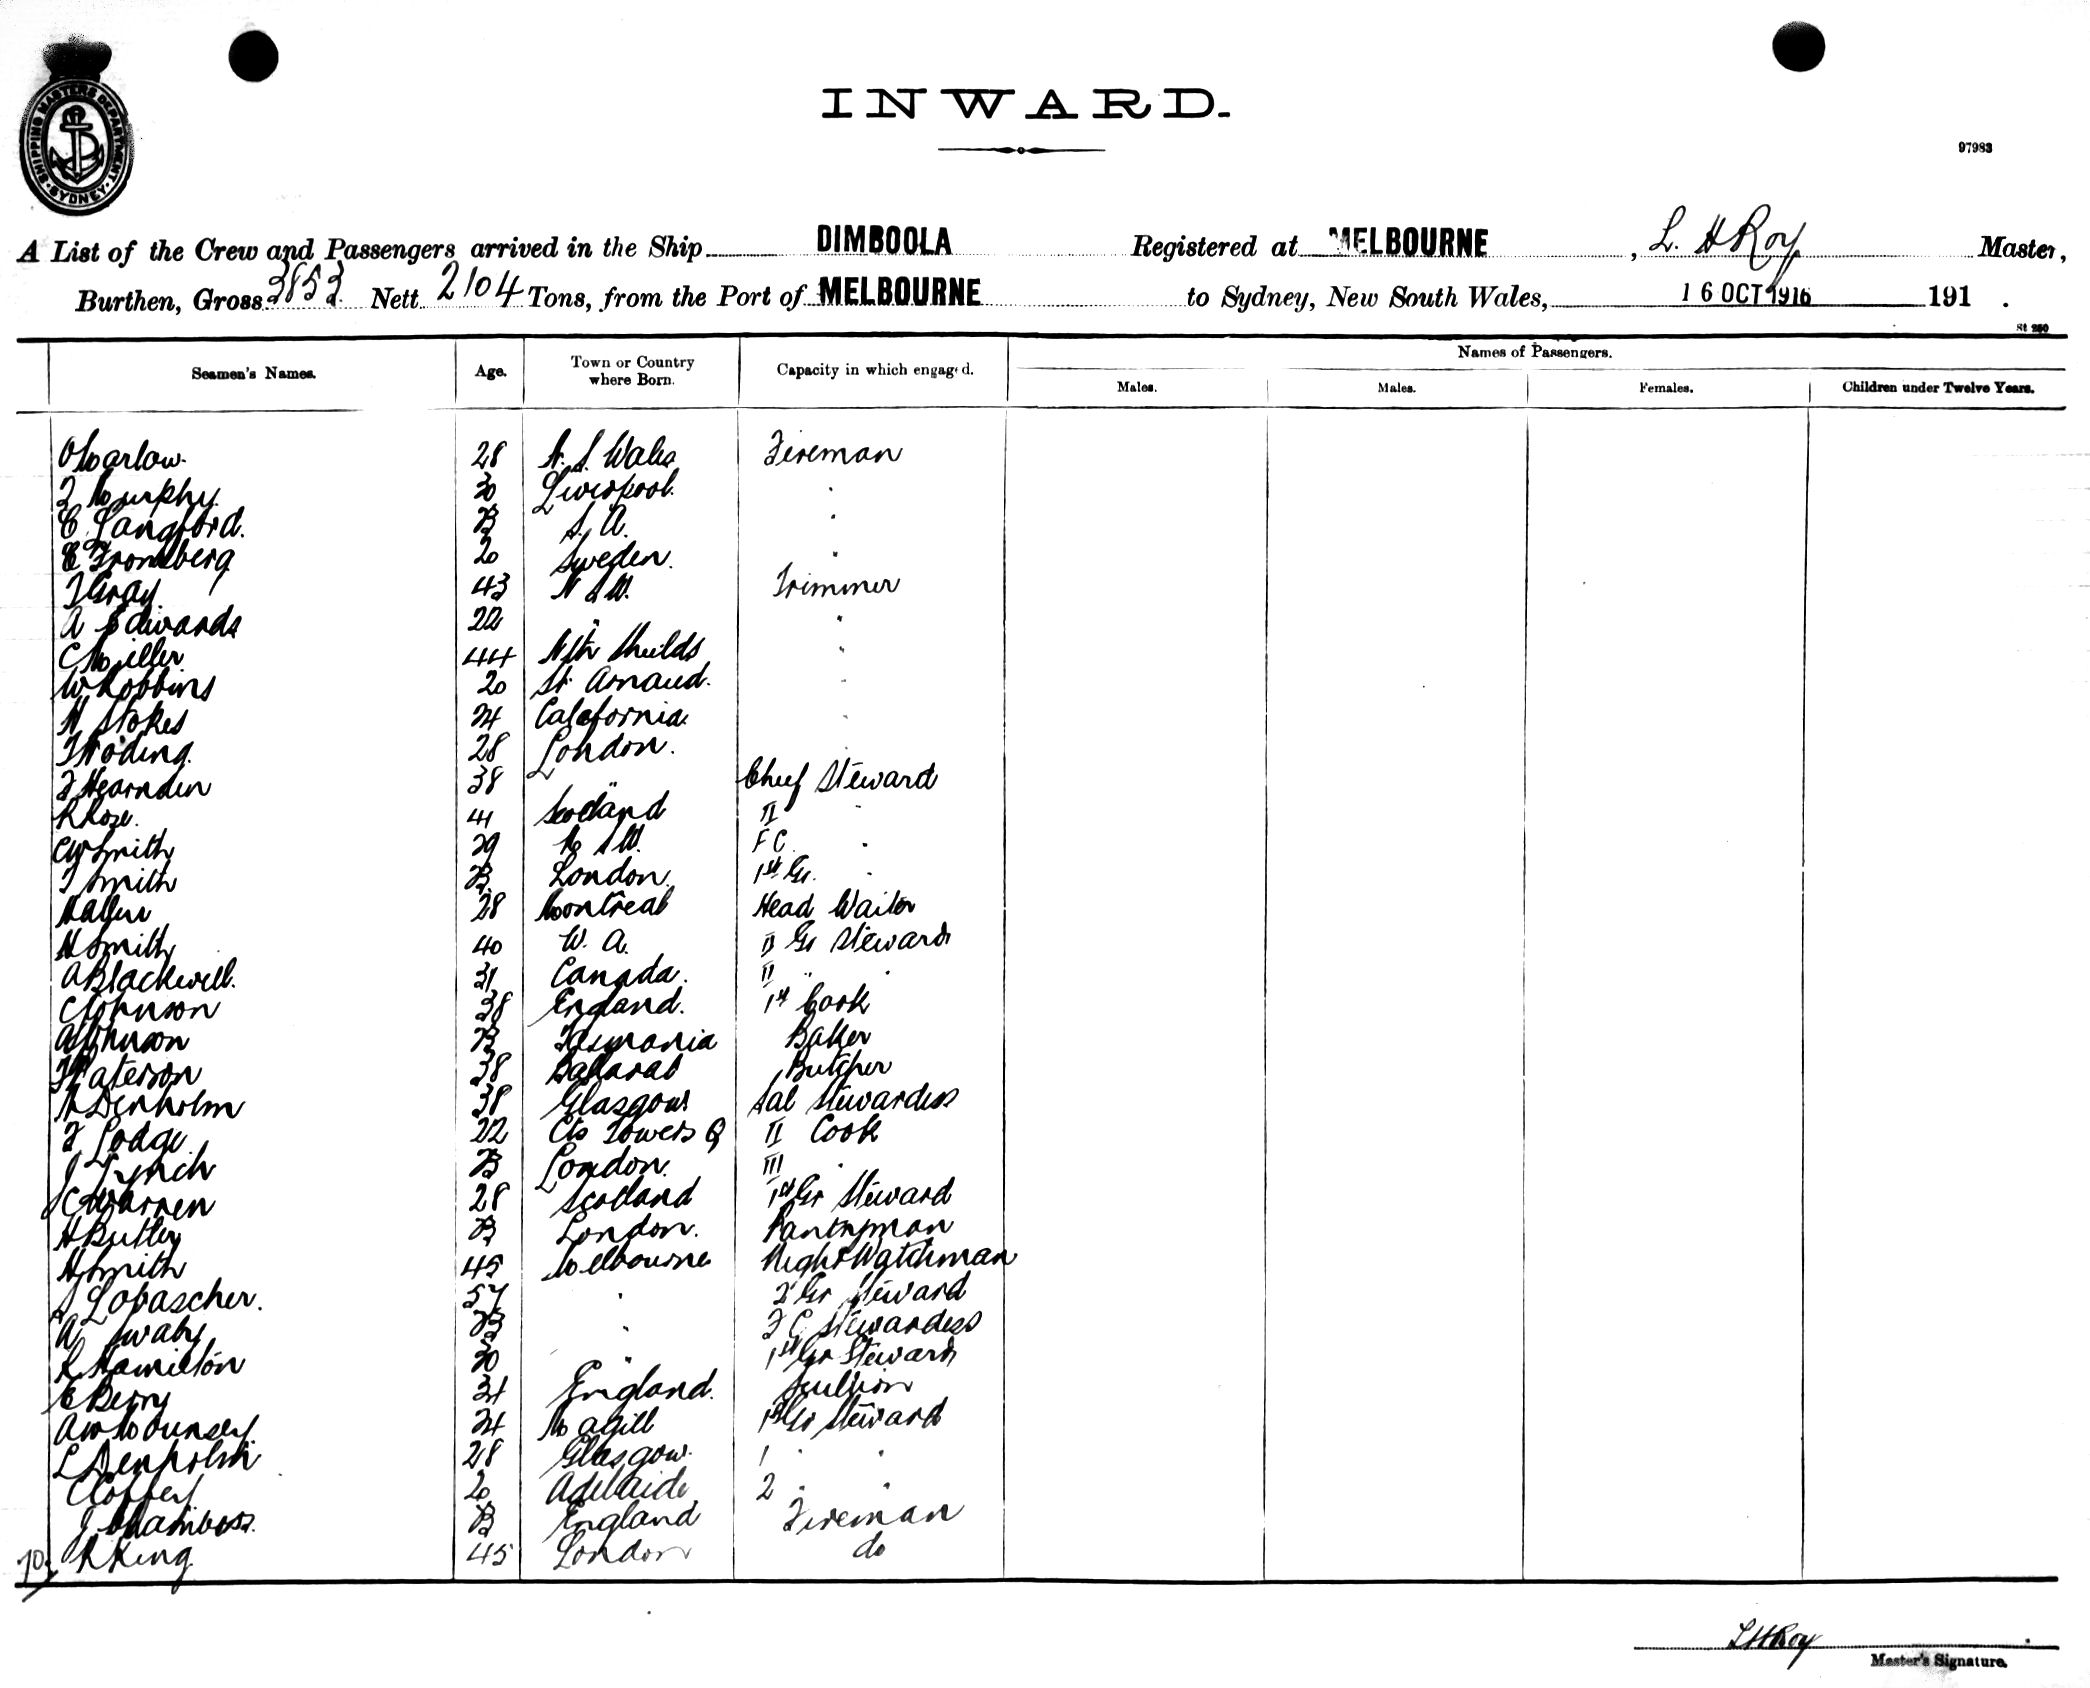 SHIPPING MASTERS DEPARTMENT · SYDNEY ·
INWARD.
97983
A List of the Crew and Passengers arrived in the Ship DIMBOOLA Registered at MELBOURNE, L. H Roy Master,
Burthen, Gross 3853 Nett 2104 Tons, from the Port of MELBOURNE to Sydney, New South Wales, 16 OCT 1916 191 .
St 250
Seamen's Names. Age. Town or Country where Born. Capacity in which engaged. Names of Passengers.
Males. Males. Females. Children under Twelve Years.
Marlow 28 N. S. Wales Fireman
Murphy 30 Liverpool "
C Langford. S. A. "
C Fromberg 20 Sweden. "
T Gray 43 N S W. Trimmer
A Edwards 22 " "
C Miller 44 Nth Shields "
W Robbins 20 St Arnaud. "
H Stokes 24 California "
28 London.
F Hearnden 38 " Chief Steward
R Rose. 41 Scotland II "
CW Smith 29 N S W. F C "
T Smith London 1st Gr. "
28 Montreal Head Waiter
H Smith 40 W. A. II Gr Steward
A Blackwell. 31 Canada. II " "
C Johnson 38 England. 1st Cook
A Johnson Tasmania Baker
Paterson 38 Ballarat Butcher
Denholm 38 Glasgow Sal Stewardess
F Lodge 22 Chs Towers Q II Cook
J Lynch London. III "
C Warren 28 Scotland 1st Gr Steward
H Butler London. Pantryman
H Smith 45 Melbourne Night Watchman
J Lobascher. 57 " 2 Gr Steward
A Swaby " F C Stewardess
R Hamilton 30 " 1st Gr Steward
E Berry 31 England. Scullion
A W Mounsey 24 Magill 1st Gr Steward
L Denholm 28 Glasgow. 1 " "
C Coffey 20 Adelaide 2 " "
J Chambers. England Fireman
70 R King 45 London do
L H Roy
Master's Signature.